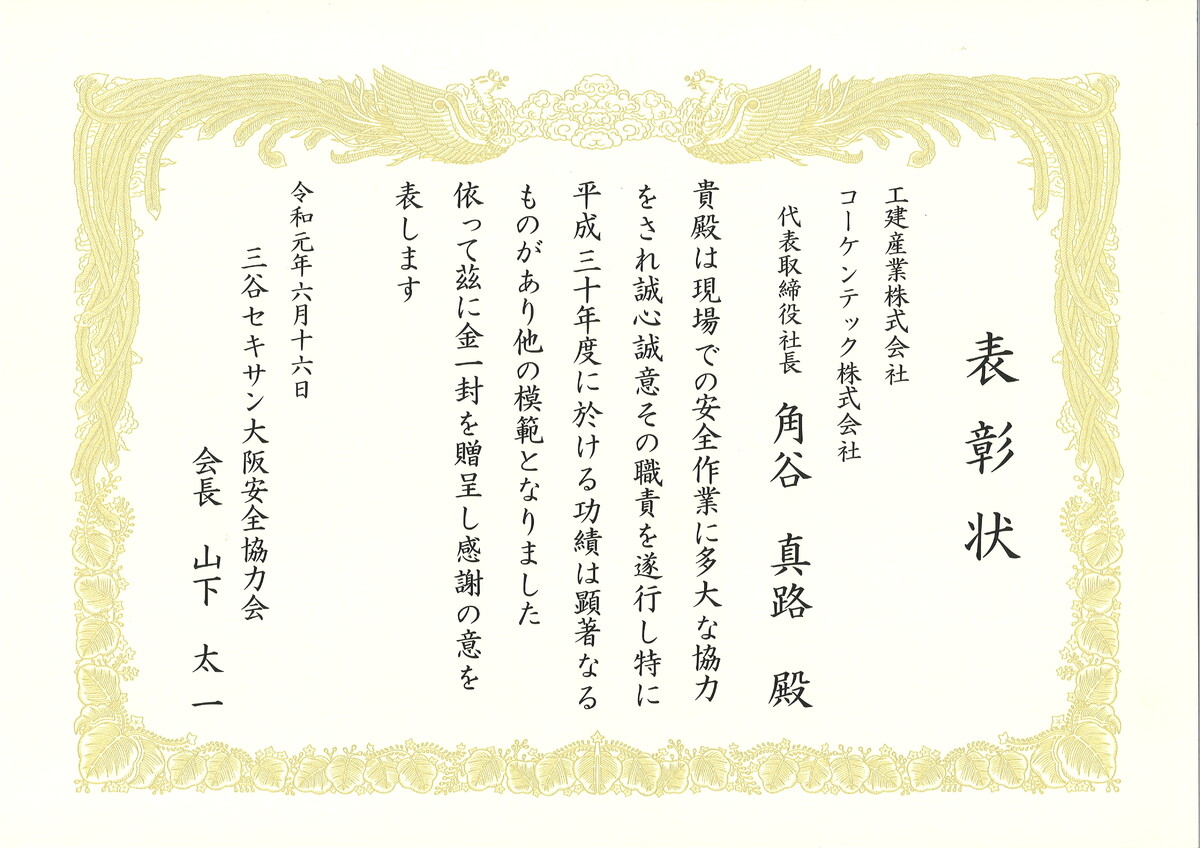 表彰状
工建産業株式会社
コーケンテック株式会社
代表取締役社長 角谷 真路 殿
貴殿は現場での安全作業に多大な協力
をされ誠心誠意その職責を遂行し特に
平成三十年度に於ける功績は顕著なる
ものがあり他の模範となりました
依って茲に金一封を贈呈し感謝の意を
表します
令和元年六月十六日
三谷セキサン大阪安全協力会
会長 山下 太一